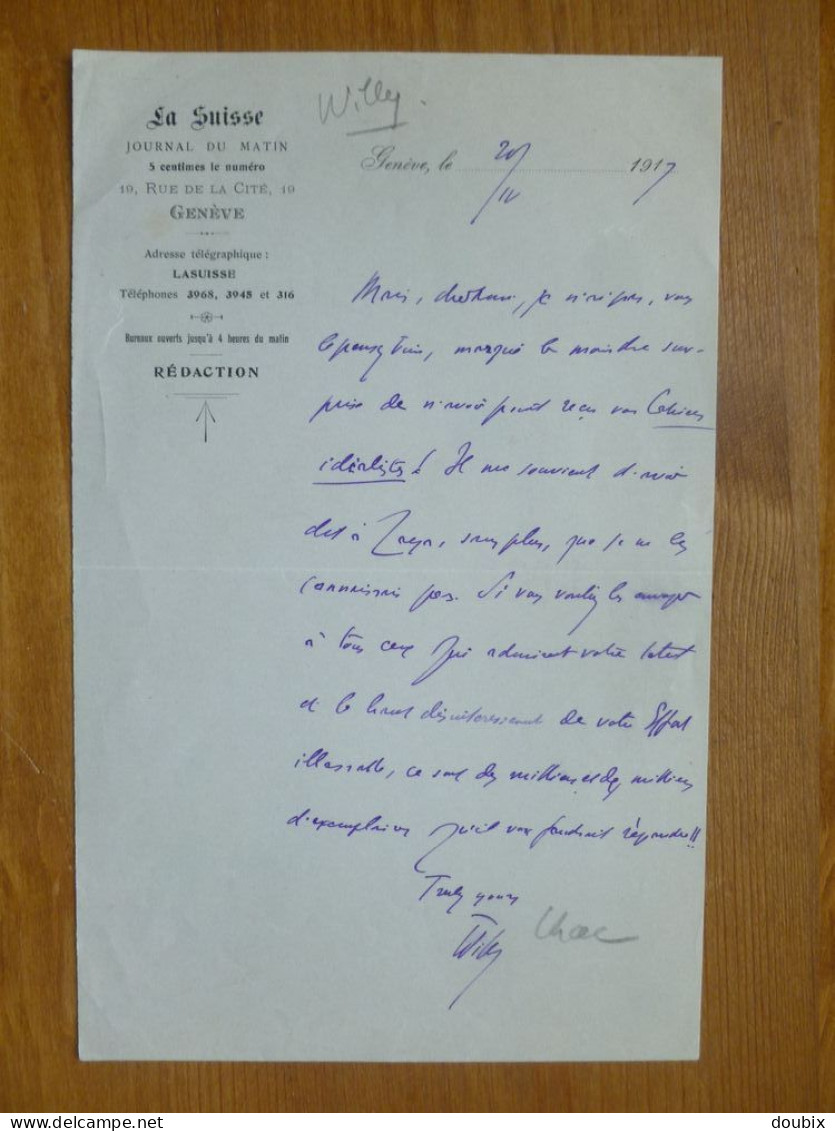 La Suisse
JOURNAL DU MATIN
5 centimes le numéro
19, RUE DE LA CITÉ, 19
GENÈVE
Adresse télégraphique :
LASUISSE
Téléphones 3968, 3945 et 316
Bureaux ouverts jusqu'à 4 heures du matin
RÉDACTION
Willy.
Genève, le 20/IV 1917
Mais, je n'ai pas, vous
le pensez bien, marqué la moindre sur-
prise de n'avoir point reçu vos Cahiers
idéalistes! Il me souvient d'avoir
dit à sans plus, que je ne les
connaissais pas. Si vous vouliez les envoyer
à tous ceux qui admirent votre talent
et le haut désintéressement de votre Effort
illassable, ce sont des millions et des millions
d'exemplaires qu'il vous faudrait répandre!!
Truly yours
Willy